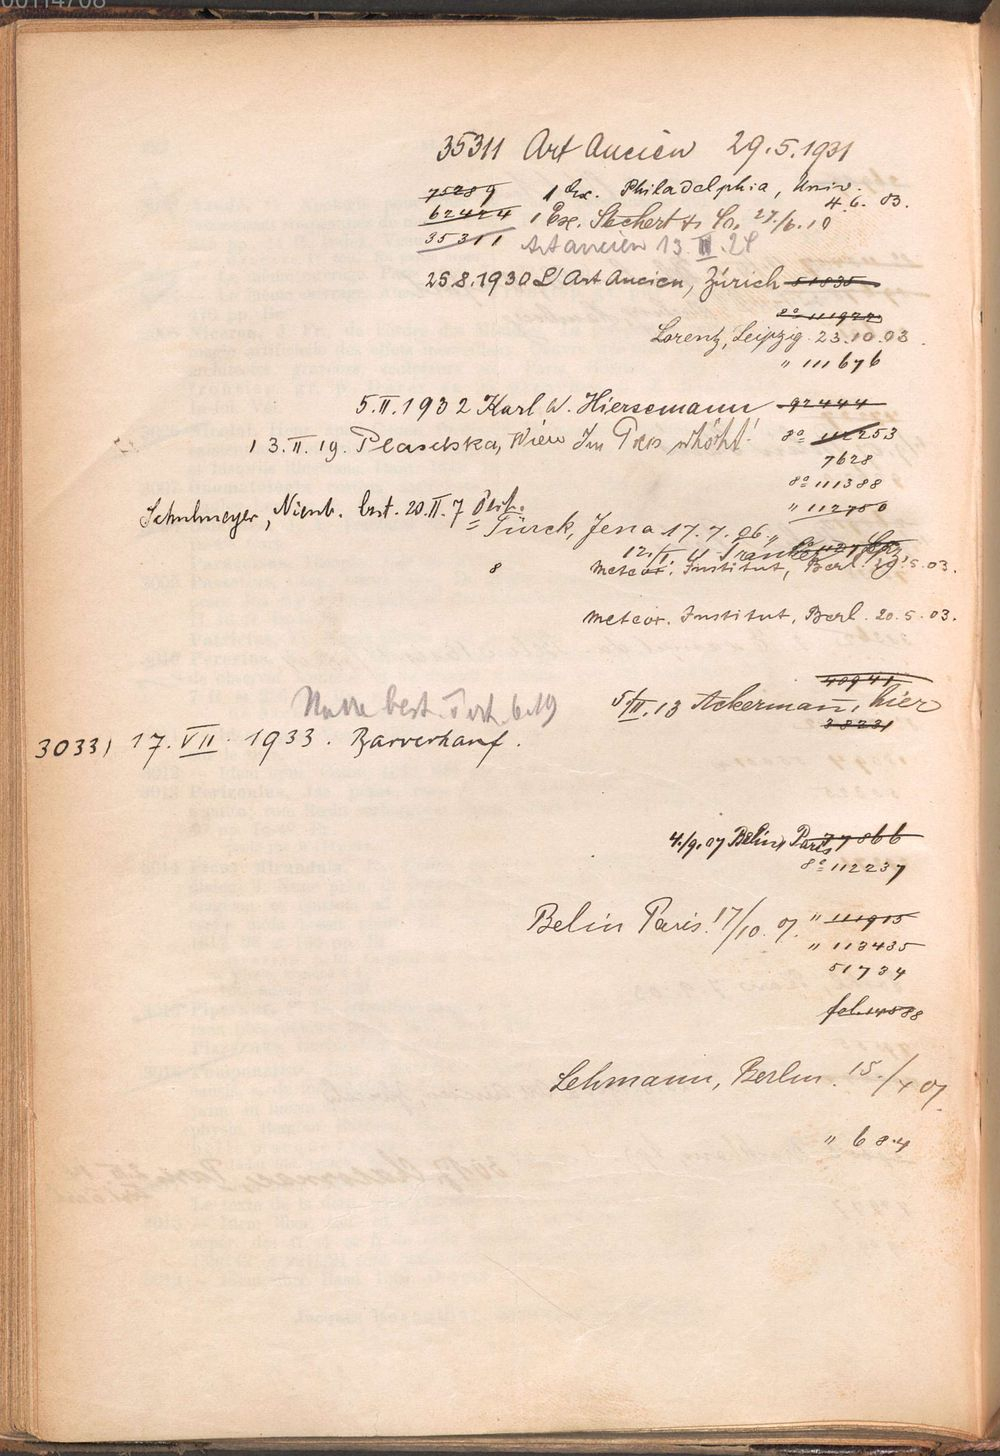 35311 Art Ancien 29.5.1931
75289 1 Ex. Philadelphia, Univ. 4.6. 03.
62424 1 Ex. Stechert & Co. 27./6.10
35311 Art ancien 13.II.28
25.8.1930 L'Art Ancien, Zürich 51835
8° 111922
Lorentz, Leipzig 23.10.03.
" 111676
5.II.1932 Karl W. Hiersemann 92444
13.II.19. Wien Im Preis erhöht! 8° 112253
7628
8° 111388
Schulmeyer, Nienb. bst. 20.II.7 " 112750
Türck, Jena 17.7.06.
12./I 11 Tränker
8 meteor. Institut, Berl. 29.5.03.
meteor. Institut, Berl. 20.5.03.
40941
5/II.13 Ackermann, hier
38231
best. 6.19
30331 17.VII.1933. Barverkauf.
4./9.07 Belin, Paris 77866
8° 112237
Belin Paris 17/10.07. " 111915
" 113435
51734
fol. 14588
Lehmann, Berlin. 15./X 07.
" 684